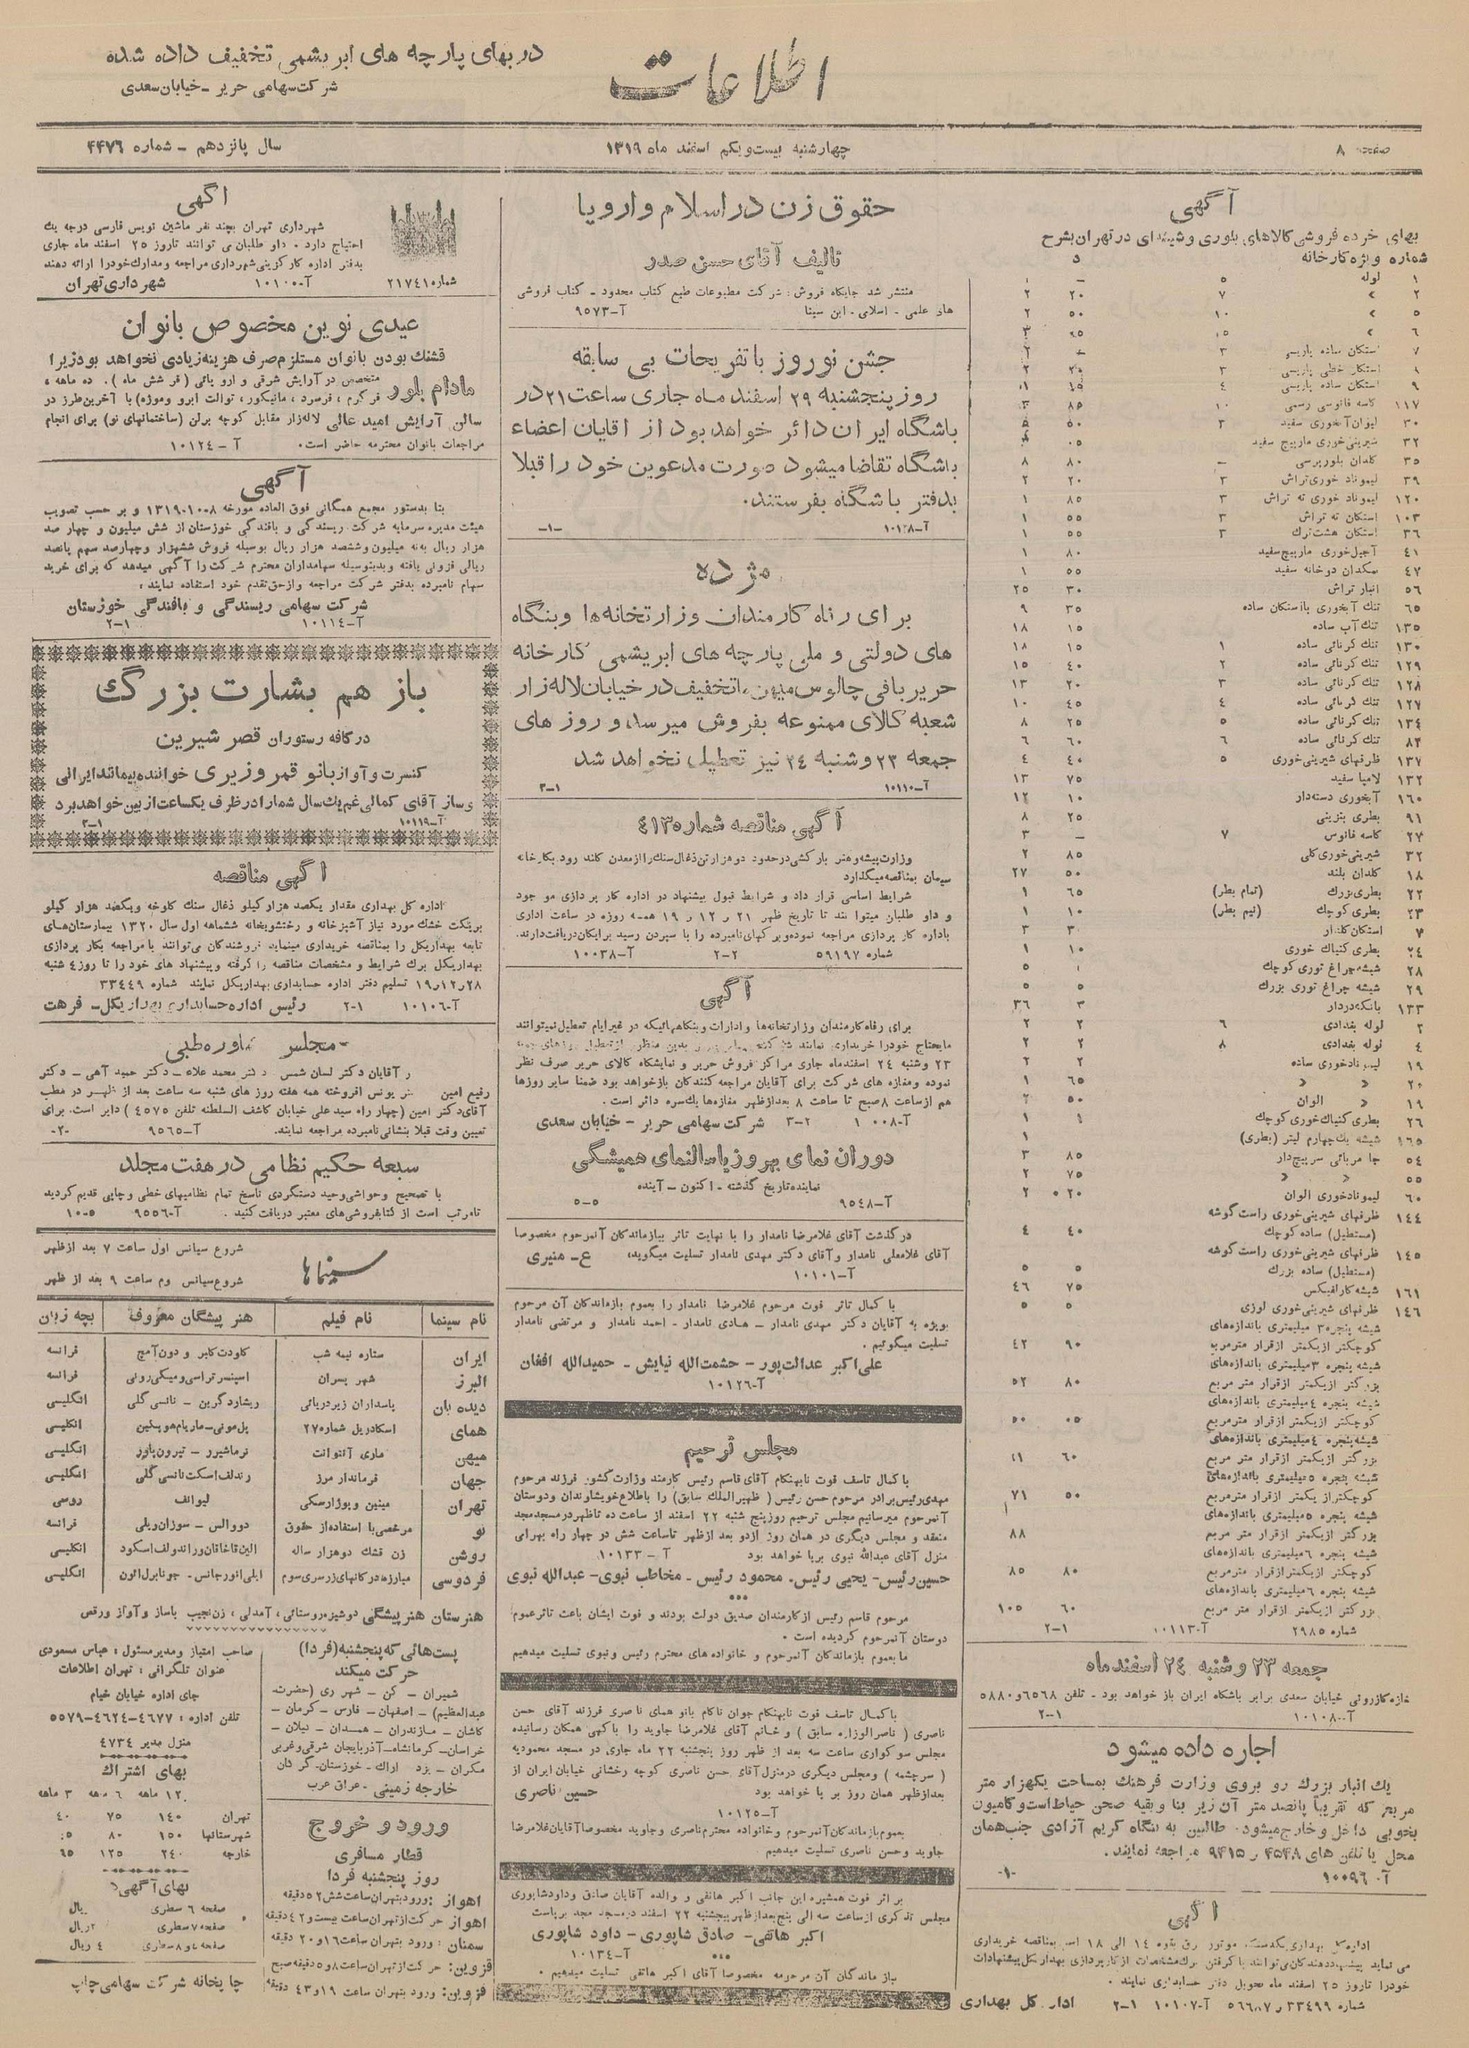 اطلاعات
در بهای پارچه های ابریشمی تخفیف داده شده
شرکت سهامی حریر - خیابان سعدی
صفحه ۸
چهارشنبه بیست و یکم اسفند ماه ۱۳۱۹
سال پانزدهم - شماره ۴۴۷۶
آگهی
بهای خرده فروشی کالاهای بلوری و شیشه‌ای در تهران بشرح
شماره ویژه کارخانه
۱ لوله ۵
۲ » ۷ ۲۰ ۲
۵ » ۱۰ ۵۰ ۲
۷ استکان ساده پاریسی ۳
۹ استکان ساده پاریسی ۴ ۴۵ ۱
۱۱۷ کاسه فانوسی رسمی ۱۰ ۸۵ ۳
۳۰ لیوان آبخوری سفید ۳ ۵۰
۳۲ شیرینی خوری مارپیچ سفید ۰۵
۳۵ گلدان بلور پرسی – ۸۰ ۸
۳۹ لیموناد خوری تراش ۳ ۲۰ ۲
۱۲۰ لیموناد خوری ته تراش ۳ ۸۵ ۱
۱۰۳ استکان ته تراش ۳ ۵۵ ۱
۳۶ استکان هشت ترک ۳ ۵۵ ۱
۴۱ آجیل خوری مارپیچ سفید ۸۰ ۱
۴۷ نمکدان دوخانه سفید ۵۵ ۱
۵۶ انبار تراش ۳۰ ۲۵
۶۵ تنگ آبخوری بااستکان ساده ۳۵ ۹
۱۳۵ تنگ آب ساده ۱۵ ۱۸
۱۳۰ تنگ کرنائی ساده ۱ ۱۵ ۱۸
۱۲۹ تنگ کرنائی ساده ۲ ۴۰ ۱۵
۱۲۸ تنگ کرنائی ساده ۳ ۲۰ ۱۳
۱۲۷ تنگ کرنائی ساده ۴ ۴۵ ۱۰
۱۳۴ تنگ کرنائی ساده ۵ ۲۵ ۸
۸۲ تنگ کرنائی ساده ۶ ۶۰ ۶
۱۳۷ ظرفهای شیرینی خوری ۵ ۴۰ ۴
۱۳۲ لامپا سفید ۷۵ ۱۳
۱۶۰ آبخوری دسته‌دار ۱۰ ۱۲
۹۱ بطری بنزینی ۲۵ ۸
۲۷ کاسه فانوس ۷ – ۳
۳۲ شیرینی خوری گلی ۸۵ ۲
۱۸ گلدان بلند ۵۰ ۲۷
۲۲ بطری بزرگ (تمام بطر) ۶۵ ۱
۲۳ بطری کوچک (نیم بطر) ۱۰ ۱
۷ استکان گلدار ۳۰ ۳
۲۴ بطری کنیاک خوری ۱۰ ۱
۲۸ شیشه چراغ توری کوچک ۵
۲۹ شیشه چراغ توری بزرگ ۵ ۵
۱۳۳ بانکه دردار ۳ ۳۶
۲ لوله بغدادی ۶ ۲ ۲
۴ لوله بغدادی ۸ ۲ ۲
۱۹ لیمونادخوری ساده ۲ ۲
۲۰ » » ۶۵ ۱
۱۹ » الوان ۵۰ ۲
۲۶ بطری کنیاک خوری کوچک
شیشه یک چهارم لیتر (بطری) ۱
۵۴ جا مربائی سرپیچ‌دار ۸۵ ۳
۵۵ » » ۷۵ ۲
۶۰ لیمونادخوری الوان ۲۰ ۲
۱۴۴ ظرفهای شیرینی خوری راست گوشه
(مستطیل) ساده کوچک ۴۰ ۴
۱۴۵ ظرفهای شیرینی خوری راست گوشه
(مستطیل) ساده بزرگ ۵ ۵
۱۶۱ شیشه کارافیکس ۷۵ ۴۶
۱۴۶ ظرفهای شیرینی خوری لوزی ۵ ۵
شیشه پنجره ۳ میلیمتری باندازه‌های
کوچکتر ازیکمتر ازقرار مترمربع ۹۰ ۴۲
شیشه پنجره ۳ میلیمتری باندازه‌های
بزرگتر ازیکمتر ازقرار متر مربع ۸۰ ۵۲
شیشه پنجره ۴ میلیمتری باندازه‌های
کوچکتر ازیکمتر ازقرار مترمربع ۰۵ ۵۰
شیشه پنجره ۴ میلیمتری باندازه‌های
بزرگتر ازیکمتر ازقرار متر مربع ۶۰
شیشه پنجره ۵ میلیمتری باندازه‌های
کوچکتر ازیکمتر ازقرار مترمربع ۵۰ ۷۱
شیشه پنجره ۵ میلیمتری باندازه‌های
بزرگتر ازیکمتر ازقرار متر مربع ۸۸
شیشه پنجره ۶ میلیمتری باندازه‌های
کوچکتر ازیکمتر ازقرار متر مربع ۸۰ ۸۵
شیشه پنجره ۶ میلیمتری باندازه‌های
بزرگتر ازیکمتر ازقرار متر مربع ۶۰ ۱۰۵
شماره ۲۹۸۵ آ-۱۰۱۱۳ ۱-۲
جمعه ۲۳ و شنبه ۲۴ اسفند ماه
خیابان سعدی برابر باشگاه ایران باز خواهد بود - تلفن ۶۵۶۸ و ۵۸۸۰
آ-۱۰۱۰۸ ۱-۲
اجاره داده میشود
یک انبار بزرگ رو بروی وزارت فرهنگ بمساحت یکهزار متر
مربع که تقریباً پانصد متر آن زیر بنا و بقیه صحن حیاط است و کامیون
بخوبی داخل و خارج میشود. طالبین به بنگاه کریم آزادی جنب همان
محل یا تلفن های ۴۵۴۸ و ۹۴۱۵ مراجعه نمایند.
آ- ۱۰۰۹۶ -۱-
آگهی
می نماید پیشنهاددهندگان می‌توانند با گرفتن برگ مشخصات از کارپردازی بهداری کل پیشنهادات
خودرا تاروز ۲۵ اسفند ماه تحویل دفتر حسابداری نمایند.
شماره ۳۳۴۹۹ آ-۱۰۱۰۷ ۱-۲ اداره کل بهداری
حقوق زن در اسلام و اروپا
تالیف آقای حسن صدر
منتشر شد جایگاه فروش: شرکت مطبوعات طبع کتاب محدود - کتاب فروشی
های علمی - اسلامی - ابن سینا آ-۹۵۷۳
جشن نوروز با تفریحات بی سابقه
روز پنجشنبه ۲۹ اسفند ماه جاری ساعت ۲۱ در
باشگاه ایران دائر خواهد بود از آقایان اعضاء
باشگاه تقاضا میشود صورت مدعوین خود را قبلا
بدفتر باشگاه بفرستند.
آ-۱۰۱۲۸ -۱-
مژده
برای رفاه کارمندان وزارتخانه‌ها و بنگاه
های دولتی و ملی پارچه های ابریشمی کارخانه
حریر بافی چالوس میهن با تخفیف در خیابان لاله‌زار
شعبه کالای ممنوعه بفروش میرسد و روز های
جمعه ۲۳ و شنبه ۲۴ نیز تعطیل نخواهد شد
آ-۱۰۱۱۰ ۱-۳
آگهی مناقصه شماره ۴۱۳۵
وزارت پیشه و هنر بارکشی درحدود دو هزار تن ذغال سنگ را ازمعدن گلند رود بکارخانه
سیمان بمناقصه میگذارد
شرایط اساسی قرار داد و شرایط قبول پیشنهاد در اداره کار پردازی موجود
و داو طلبان میتوانند تا تاریخ ظهر ۲۱ ر ۱۲ ر ۱۹ همه روزه در ساعت اداری
باداره کار پردازی مراجعه نموده و برگهای نامبرده را با سپردن رسید برایگان دریافت دارند.
شماره ۵۹۱۹۷ ۲-۲ آ-۱۰۰۳۸
آگهی
برای رفاه کارمندان وزارتخانه‌ها و ادارات و بنگاههائیکه در غیر ایام تعطیل نمیتوانند
۲۳ و شنبه ۲۴ اسفندماه جاری مراکز فروش حریر و نمایشگاه کالای حریر صرف نظر
نموده و مغازه های شرکت برای آقایان مراجعه کنندگان بازخواهد بود ضمنا سایر روزها
هم از ساعت ۸ صبح تا ساعت ۸ بعدازظهر مغازه‌ها یکسره دائر است.
۲-۳ شرکت سهامی حریر - خیابان سعدی
دوران نمای بهروز یا سالنمای همیشگی
نماینده تاریخ گذشته - اکنون - آینده
آ-۹۵۴۸ ۵-۵
درگذشت آقای غلامرضا نامدار را با نهایت تاثر ببازماندگان آنمرحوم مخصوصا
آقای غلامعلی نامدار و آقای دکتر مهدی نامدار تسلیت میگوید، ع - منیری
آ-۱۰۱۰۱
با کمال تاثر فوت مرحوم غلامرضا نامدار را بعموم بازماندگان آن مرحوم
بویژه به آقایان دکتر مهدی نامدار - هادی نامدار - احمد نامدار و مرتضی نامدار
تسلیت میگوئیم.
علی اکبر عدالت‌پور - حشمت‌الله نیایش - حمیدالله افغان
آ-۱۰۱۲۶
مجلس ترحیم
با کمال تاسف فوت نابهنگام آقای قاسم رئیس کارمند وزارت کشور فرزند مرحوم
مهدی رئیس برادر مرحوم حسن رئیس (ظهیرالملک سابق) را باطلاع خویشاوندان و دوستان
آنمرحوم میرسانیم مجلس ترحیم روز پنج شنبه ۲۲ اسفند از ساعت ده تاظهر در مسجد مجد
منعقد و مجلس دیگری در همان روز ازدو بعد ازظهر تاساعت شش در چهار راه پهرابی
منزل آقای عبدالله نبوی برپا خواهد بود آ-۱۰۱۳۳
حسین رئیس - یحیی رئیس - محمود رئیس - مخاطب نبوی - عبدالله نبوی
مرحوم قاسم رئیس از کارمندان صدیق دولت بودند و فوت ایشان باعث تاثر عموم
دوستان آنمرحوم گردیده است.
ما بعموم بازماندگان آنمرحوم و خانواده های محترم رئیس و نبوی تسلیت میدهیم
با کمال تاسف فوت نابهنگام جوان ناکام بانو همای ناصری فرزند آقای حسن
ناصری (ناصرالوزاره سابق) و خانم آقای غلامرضا جاوید را باگهی همگان رسانیده
مجلس سوگواری ساعت سه بعد از ظهر روز پنجشنبه ۲۲ ماه جاری در مسجد محمودیه
(سرچشمه) و مجلس دیگری درمنزل آقای حسن ناصری کوچه رخشانی خیابان ایران از
بعدازظهر همان روز بر پا خواهد بود حسین ناصری
آ-۱۰۱۲۵
بعموم بازماندگان آنمرحوم و خانواده محترم ناصری و جاوید مخصوصا آقایان غلامرضا
جاوید و حسن ناصری تسلیت میدهیم
بر اثر فوت همشیره این جانب اکبر هاتفی و والده آقایان صادق و داود شاپوری
مجلس تذکری ازساعت سه الی پنج بعدازظهر پنجشنبه ۲۲ اسفند درمسجد مجد برپاست
اکبر هاتفی - صادق شاپوری - داود شاپوری
آ-۱۰۱۳۴
ببازماندگان آن مرحومه مخصوصا آقای اکبر هاتفی تسلیت میدهیم.
آگهی
شهرداری تهران بچند نفر ماشین نویس فارسی درجه یک
احتیاج دارد. داو طلبان می توانند تاروز ۲۵ اسفند ماه جاری
بدفتر اداره کارگزینی شهرداری مراجعه و مدارک خودرا ارائه دهند
شماره ۲۱۷۴۱ آ-۱۰۱۰۰ شهرداری تهران
عیدی نوین مخصوص بانوان
قشنگ بودن بانوان مستلزم صرف هزینه زیادی نخواهد بود زیرا
مادام بلور متخصص در آرایش شرقی و اروپائی (فر شش ماه)، ده ماهه،
فرگرم، فرسرد، مانیکور، توالت ابرو و موژه) با آخرین طرز در
سالن آرایش امید عالی لاله‌زار مقابل کوچه برلن (ساختمانهای نو) برای انجام
مراجعات بانوان محترمه حاضر است. آ-۱۰۱۲۴
آگهی
بنا بدستور مجمع همگانی فوق العاده مورخه ۸-۱۰-۱۳۱۹ و بر حسب تصویب
هیئت مدیره سرمایه شرکت ریسندگی و بافندگی خوزستان از شش میلیون و چهار صد
هزار ریال به‌نه میلیون و ششصد هزار ریال بوسیله فروش ششهزار و چهارصد سهم پانصد
ریالی فزونی یافته و بدینوسیله سهامداران محترم شرکت را آگهی میدهد که برای خرید
سهام نامبرده بدفتر شرکت مراجعه و ازحق تقدم خود استفاده نمایند.
شرکت سهامی ریسندگی و بافندگی خوزستان
آ-۱۰۱۱۴ ۱-۲
باز هم بشارت بزرگ
در کافه رستوران قصر شیرین
کنسرت و آواز بانو قمر وزیری خواننده بیمانند ایرانی
و ساز آقای کمالی غم یک سال شمارا در ظرف یکساعت از بین خواهد برد
آ-۱۰۱۱۹ ۱-۳
آگهی مناقصه
اداره کل بهداری مقدار یکصد هزار کیلو ذغال سنگ کلوخه و یکصد هزار کیلو
بریکت خشک مورد نیاز آشپزخانه و رختشویخانه ششماهه اول سال ۱۳۲۰ بیمارستان‌های
تابعه بهداری کل را بمناقصه خریداری مینماید فروشندگان می‌توانند با مراجعه بکار پردازی
بهداری کل برگ شرایط و مشخصات مناقصه را گرفته و پیشنهاد های خود را تا روز ۴ شنبه
۲۸ر۱۲ر۱۹ تسلیم دفتر اداره حسابداری بهداری کل نمایند شماره ۳۳۴۴۹
آ-۱۰۱۰۶ ۱-۲ رئیس اداره حسابداری بهداری کل - فرهت
مجلس مشاوره طبی
آقایان دکتر لسان شمس دکتر محمد علاء - دکتر حمید آهی - دکتر
رفیع امین یونس افروخته همه هفته روز های شنبه سه ساعت بعد از ظهر در مطب
آقای دکتر امین (چهار راه سید علی خیابان کاشف السلطنه تلفن ۴۵۷۵) دایر است. برای
تعیین وقت قبلا بنشانی نامبرده مراجعه نمایند. آ-۹۵۶۵ -۲-
سبعه حکیم نظامی در هفت مجلد
با تصحیح و حواشی وحید دستگردی ناسخ تمام نظامیهای خطی و چاپی قدیم گردید
تامرتب است از کتابفروشی‌های معتبر دریافت کنید. آ-۹۵۵۶ ۵-۱۰
سینماها
شروع سیانس اول ساعت ۷ بعد ازظهر
شروع سیانس دوم ساعت ۹ بعد از ظهر
نام سینما نام فیلم هنر پیشگان معروف بچه زبان
ایران ستاره نیمه شب کلودت کلبر و دون آمچ فرانسه
البرز شهر پسران اسپنسر تراسی و میکی رونی فرانسه
دیده بان پاسداران زیردریائی ریشارد گرین - نانسی کلی انگلیسی
همای اسکادریل شماره ۲۷ پل مونی - ماریام هوپکینس انگلیسی
میهن ماری آنتوانت نرماشیرر - تیرون پاور انگلیسی
جهان فرماندار مرز رندلف اسکت نانسی کلی انگلیسی
تهران مینین و پوژارسکی لیوانف روسی
نو مرخصی با استفاده از حقوق دووالس - سوزان ویلی فرانسه
روشن زن قشنگ دوهزار ساله الین قاخاقان و راندولف اسکود انگلیسی
فردوسی مبارزه درکانهای زر سری سوم انگلیسی
هنرستان هنرپیشگی دوشیزه روستائی، آمدلی، زن نجیب باساز و آواز و رقص
پست هائی که پنجشنبه (فردا)
حرکت میکند
شمیران - کن - شهر ری (حضرت
عبدالعظیم) - اصفهان - فارس - کرمان -
کاشان - مازندران - همدان - گیلان -
خراسان - کرمانشاه - آذربایجان شرقی و غربی
مکران - یزد اراک - خوزستان - گرگان
خارجه زمینی - عراق عرب
ورود و خروج
قطار مسافری
روز پنجشنبه فردا
اهواز: ورود بتهران ساعت شش و ۵۲ دقیقه
اهواز حرکت ازتهران ساعت بیست و ۴۲ دقیقه
سمنان: ورود بتهران ساعت ۱۶ و ۲۰ دقیقه
قزوین: حرکت ازتهران ساعت ۸ و ۵ دقیقه صبح
قزوین: ورود بتهران ساعت ۱۹ و ۴۳ دقیقه
صاحب امتیاز و مدیر مسئول: عباس مسعودی
عنوان تلگرافی: تهران اطلاعات
جای اداره خیابان خیام
تلفن اداره: ۴۶۷۷-۴۶۲۴-۵۵۷۹
منزل مدیر ۴۷۳۴
بهای اشتراک
۱۲ ماهه ۶ ماهه ۳ ماهه
تهران ۱۴۰ ۷۵ ۴۰
شهرستانها ۱۵۰ ۸۰
خارجه ۲۴۰ ۱۲۵ ۶۵
بهای آگهی
صفحه ۶ سطری ریال
صفحه ۷ سطری ریال
صفحه ۴ و ۸ سطری ۴ ریال
چاپخانه شرکت سهامی چاپ